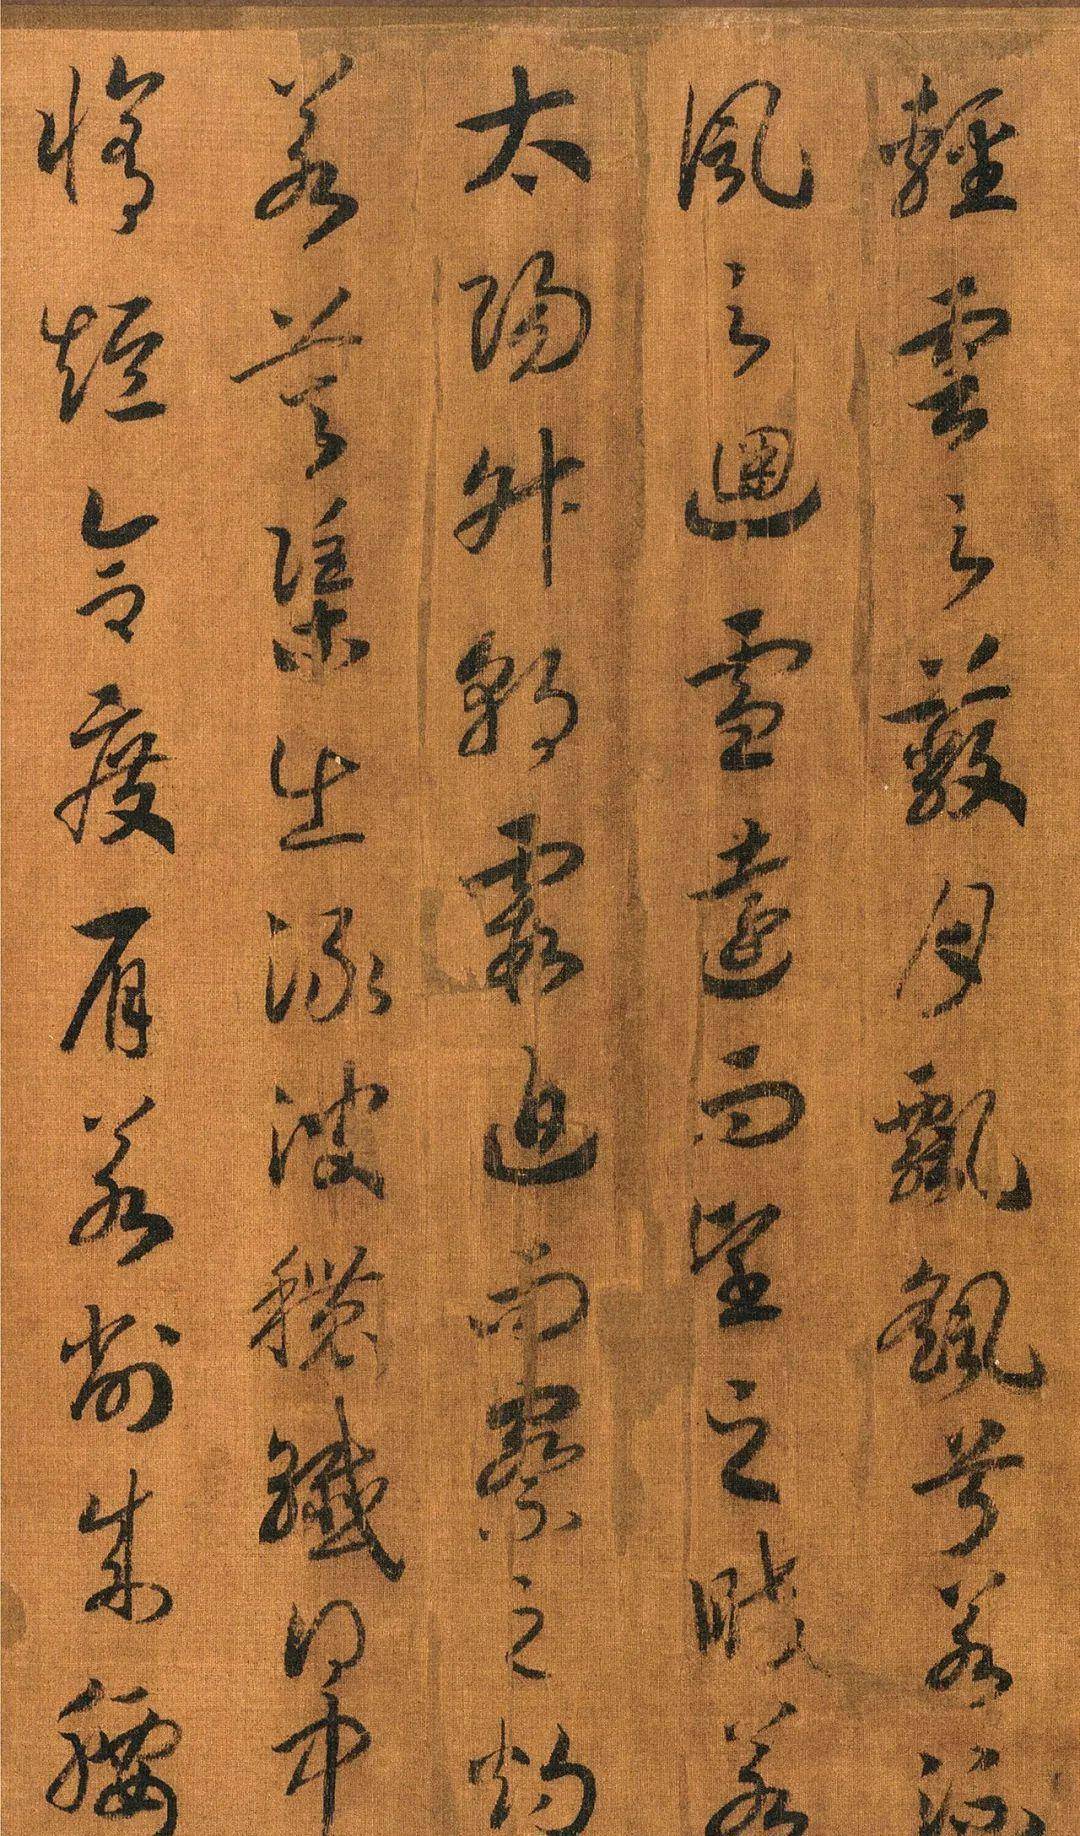 輕雲之蔽月飄颻兮若流
風之迴雪遠而望之皎若
太陽升朝霞迫而察之灼
若芙渠出淥波穠纖得中
脩短合度肩若削成腰